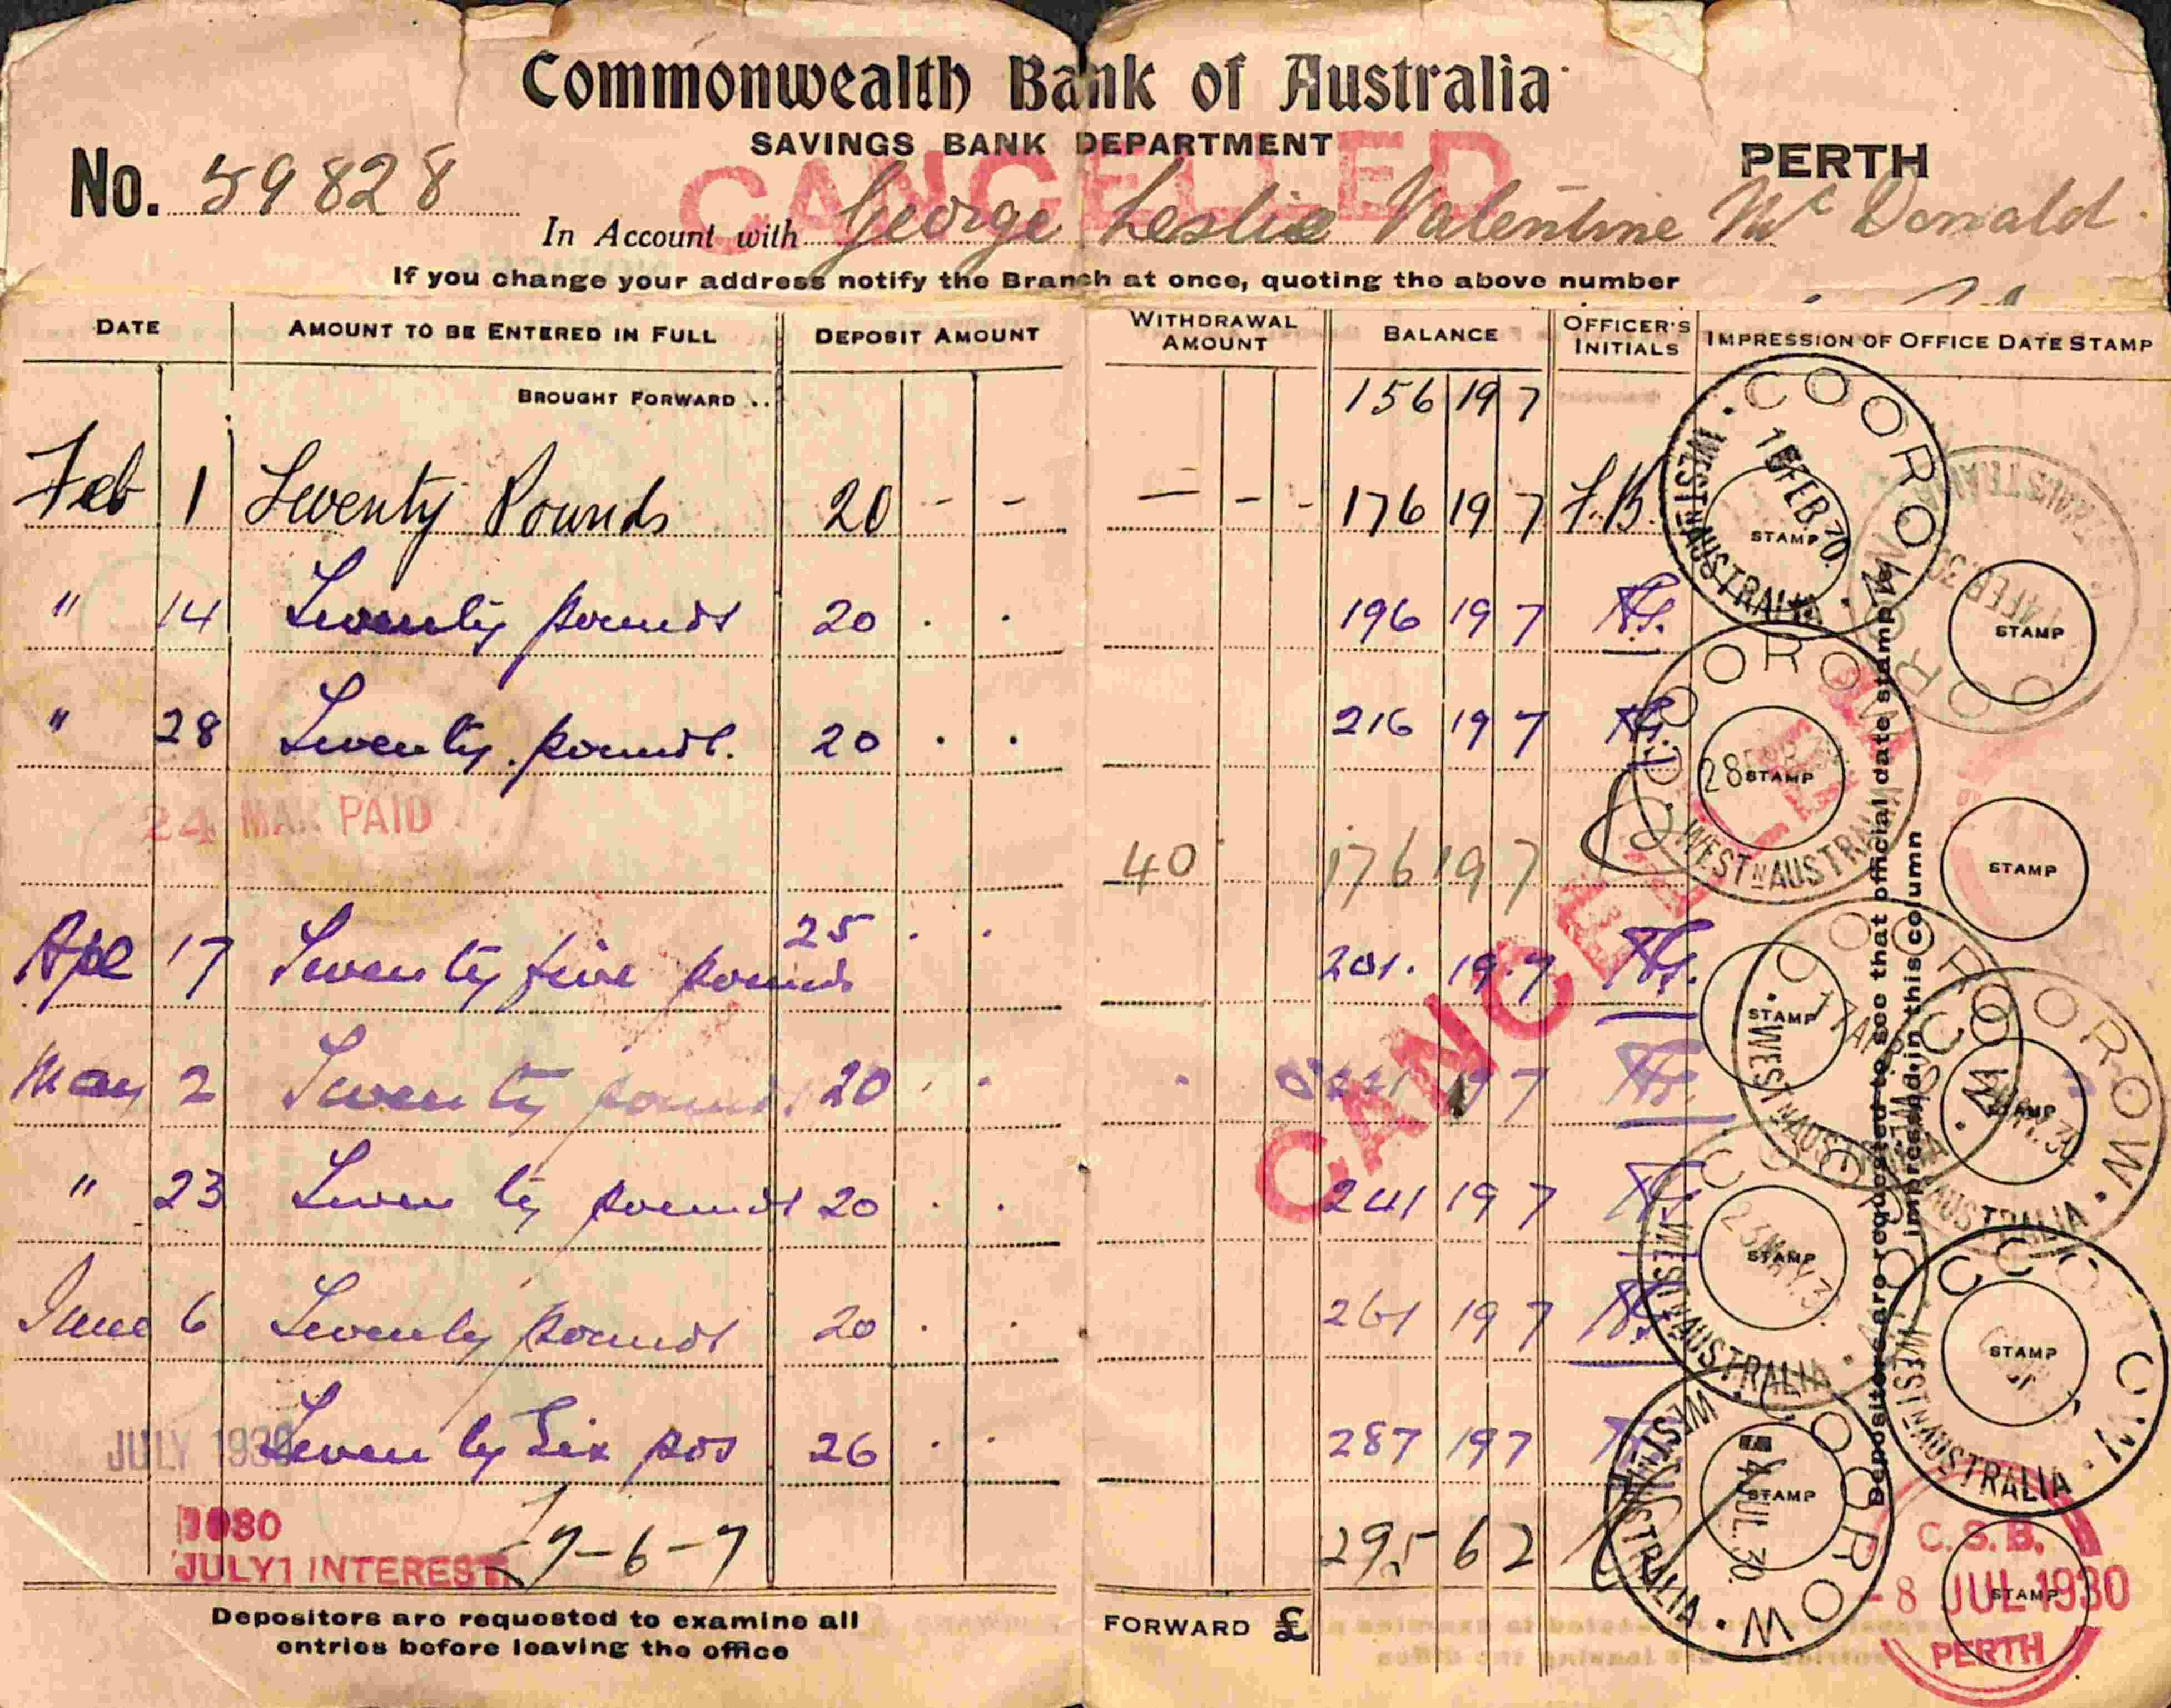 Commonwealth Bank of Australia
SAVINGS BANK DEPARTMENT
CANCELLED
PERTH
No. 59828
In Account with George Leslie Valentine Mc Donald
If you change your address notify the Branch at once, quoting the above number
DATE AMOUNT TO BE ENTERED IN FULL DEPOSIT AMOUNT WITHDRAWAL AMOUNT BALANCE OFFICER'S INITIALS IMPRESSION OF OFFICE DATE STAMP
BROUGHT FORWARD .. 156 19 7
Feb 1 Twenty Pounds 20 - - — - - 176 19 7 F.B.
" 14 Twenty pounds 20 . . 196 19 7
" 28 Twenty pounds. 20 . . 216 19 7
24 MAR PAID 40 176 19 7
Ape 17 Twenty five pounds 25 . . 201. 19.7
May 2 Twenty pounds 20 . . 221 19 7
" 23 Twenty pounds 20 . . 241 19 7
June 6 Twenty pounds 20 . . 261 19 7
JULY 1930 Twenty Six pds 26 . . 287 19 7
1930
JULY 1 INTEREST 7-6-7 295 6 2
Depositors are requested to examine all
entries before leaving the office
FORWARD £
COOROW
WESTN AUSTRALIA
1 FEB.
STAMP
AUSTRALIA
FEB.30
STAMP
COOROW
28
STAMP
WESTN AUSTRALIA
CANCELLED
STAMP
COOROW
17 AP
STAMP
WESTN AUSTRALIA
COOROW
STAMP
AUSTRALIA
23 MAY.30
STAMP
WESTN AUSTRALIA
STAMP
WESTN AUSTRALIA
COOROW
4 JUL.30
STAMP
WESTN AUSTRALIA
C.S.B.
-8 JUL 1930
STAMP
PERTH
Depositors are requested to see that official date stamp is
impressed in this column